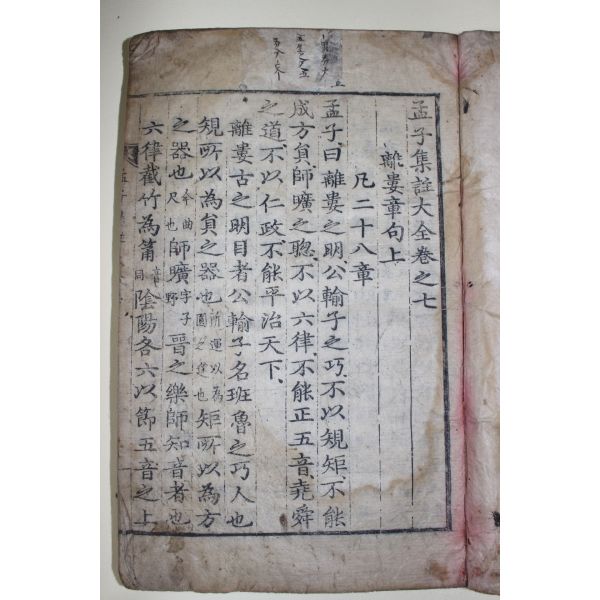 孟子集註大全卷之七
離婁章句上
凡二十八章
孟子曰離婁之明、公輸子之巧、不以規矩、不能
成方員、師曠之聰、不以六律、不能正五音、堯舜
之道、不以仁政、不能平治天下、
離婁古之明目者公輸子名班魯之巧人也
規所以為員之器也所運以為圓之筳也矩所以為方
之器也今曲尺也師曠字子野晉之樂師知音者也
六律截竹為筩音同陰陽各六以節五音之上